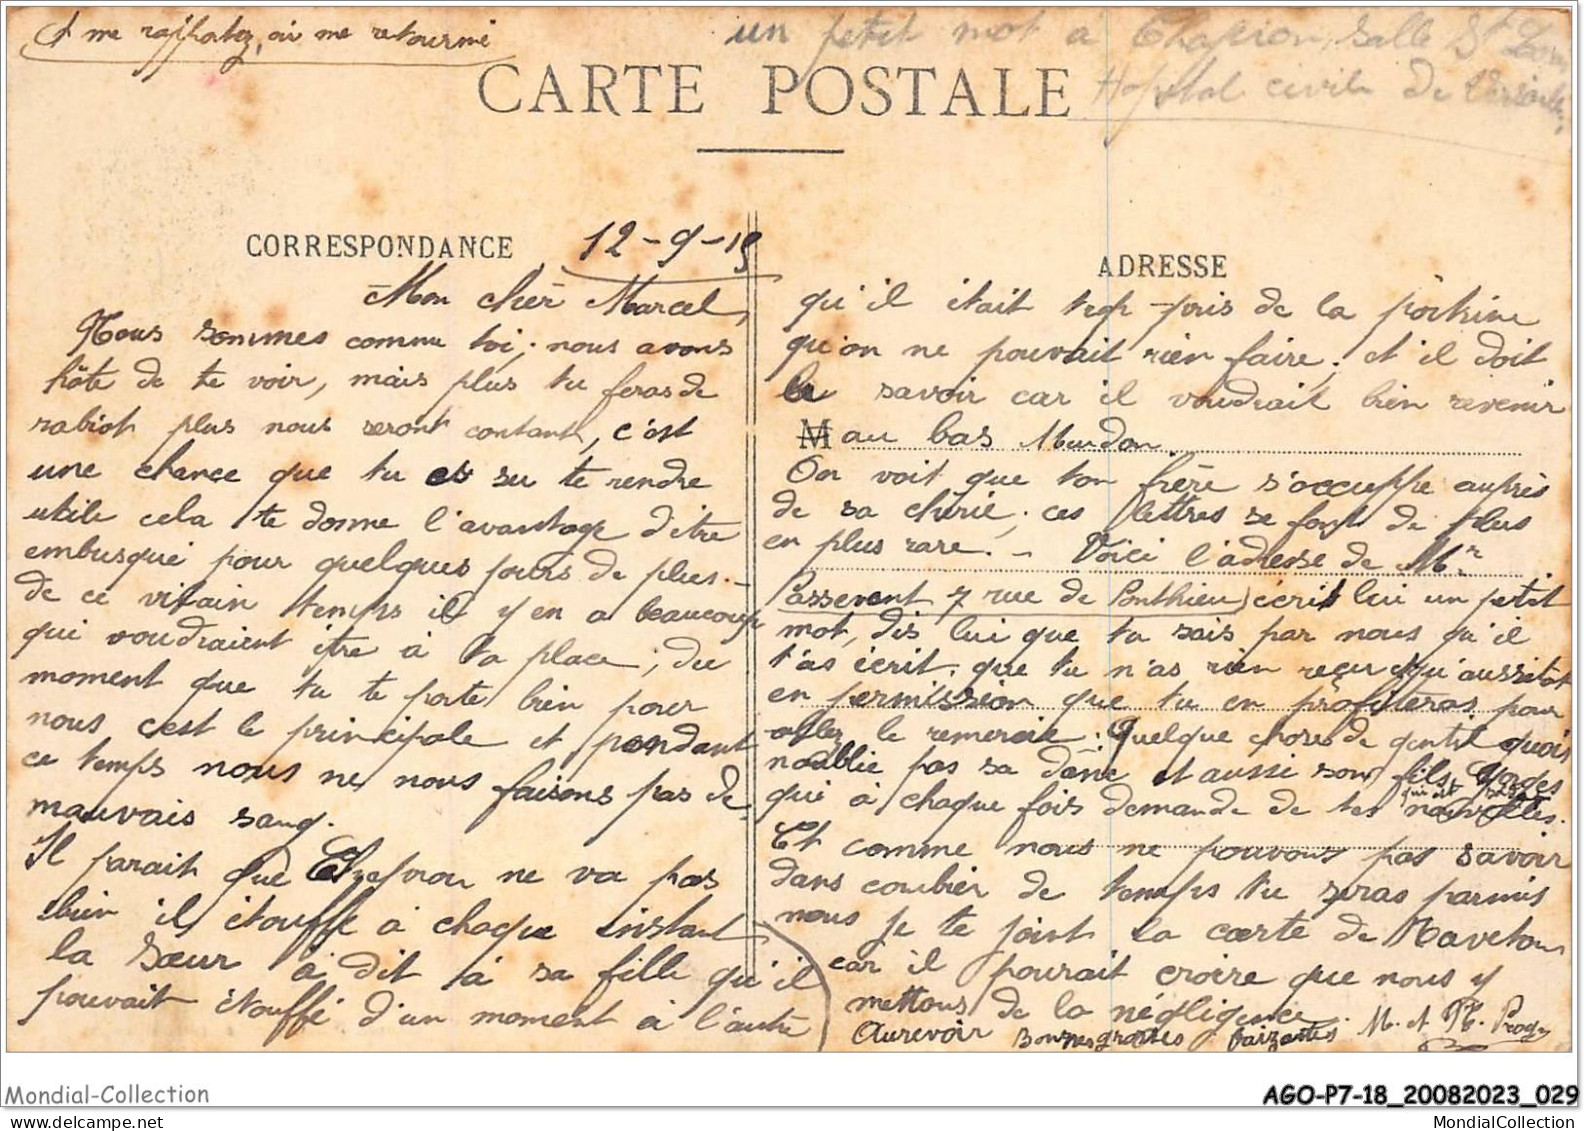 et me rapportez, où me retourmé
un petit mot à Chapron, salle St
Hopital civile de
CARTE POSTALE
CORRESPONDANCE
12-9-15
Mon cher Marcel,
Nous sommes comme toi, nous avons
hâte de te voir, mais plus tu feras de
rabiot plus nous seront contant, c'est
une chance que tu es su te rendre
utile cela te donne l'avantage d'être
embusqué pour quelques jours de plus. -
de ce vilain temps il y en a beaucoup
qui voudraient être à ta place, du
moment que tu te porte bien pour
nous c'est le principale et pendant
ce temps nous ne nous faisons pas de
mauvais sang.
Il parait que Chapron ne va pas
bien il étouffe à chaque instant
la sœur à dit à sa fille qu'il
pouvait étouffé d'un moment à l'autre
ADRESSE
qu'il était trop pris de la poitrine
qu'on ne pouvait rien faire, et il doit
le savoir car il voudrait bien revenir
M au bas Meudon.
On voit que ton frère s'occuppe auprès
de sa chérie, ces lettres se font de plus
en plus rare. - Voici l'adresse de Mr
Passevent 7 rue de Ponthieu, écrit lui un petit
mot, dis lui que tu sais par nous qu'il
t'as écrit, que tu n'as rien reçu et qu'aussitôt
en permission que tu en profiteras pour
aller le remercié. Quelque chose de gentil quoi
noublie pas sa dame et aussi son fils
qui à chaque fois demande de tes nouvelles.
Et comme nous ne pouvons pas savoir
dans combien de temps tu seras parmis
nous je te joint la carte de
car il pourait croire que nous y
mettons de la négligence.
Aurevoir Bonnes grosses baizettes M. et
Mondial-Collection
AGO-P7-18_20082023_029
delcampe.net
MondialCollection